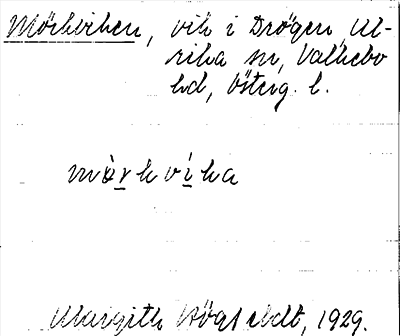 Mörkviken, vik i Drögen, Ul-
rika sn, Valkebo
hd, Österg. l.
mö̀rkvìka
Margith Högstedt, 1929.